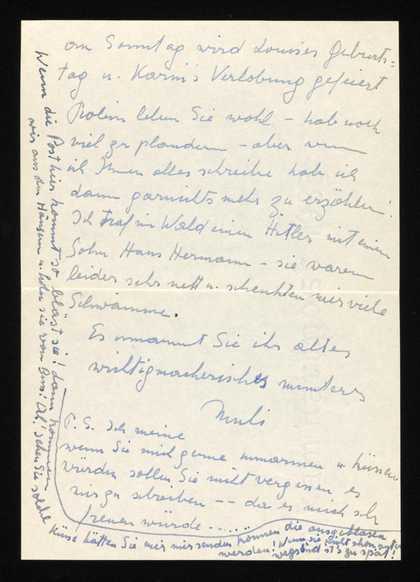 am Sonntag wird Louises Geburts=
tag u. Karin's Verlobung gefeiert
leben Sie wohl – hab noch
viel zu plaudern – aber wenn
ich Ihnen alles schreibe hab ich
dann garnichts mehr zu erzählen!
Ich traf im Wald einen Hitler mit einem
Sohn Hans Hermann – sie waren
leider sehr nett u. schenkten mir viele
Schwämme.
Es umarmt Sie ihr altes
wichtigmacherisches munteres
P.S. Ich meine
wenn Sie mich gerne umarmen u küssen
würden sollen Sie nicht vergessen es
mir zu schreiben -- da es mich sehr
freuen würde ......
Wenn die Post hier kommt so bläst sie! dann kommen
wir aus den u. holen sie vom Bus! Ah! sehen Sie solche
Küsse hätten Sie mir senden können die
werden! Wenn sie schon
sind ist's zu spät!